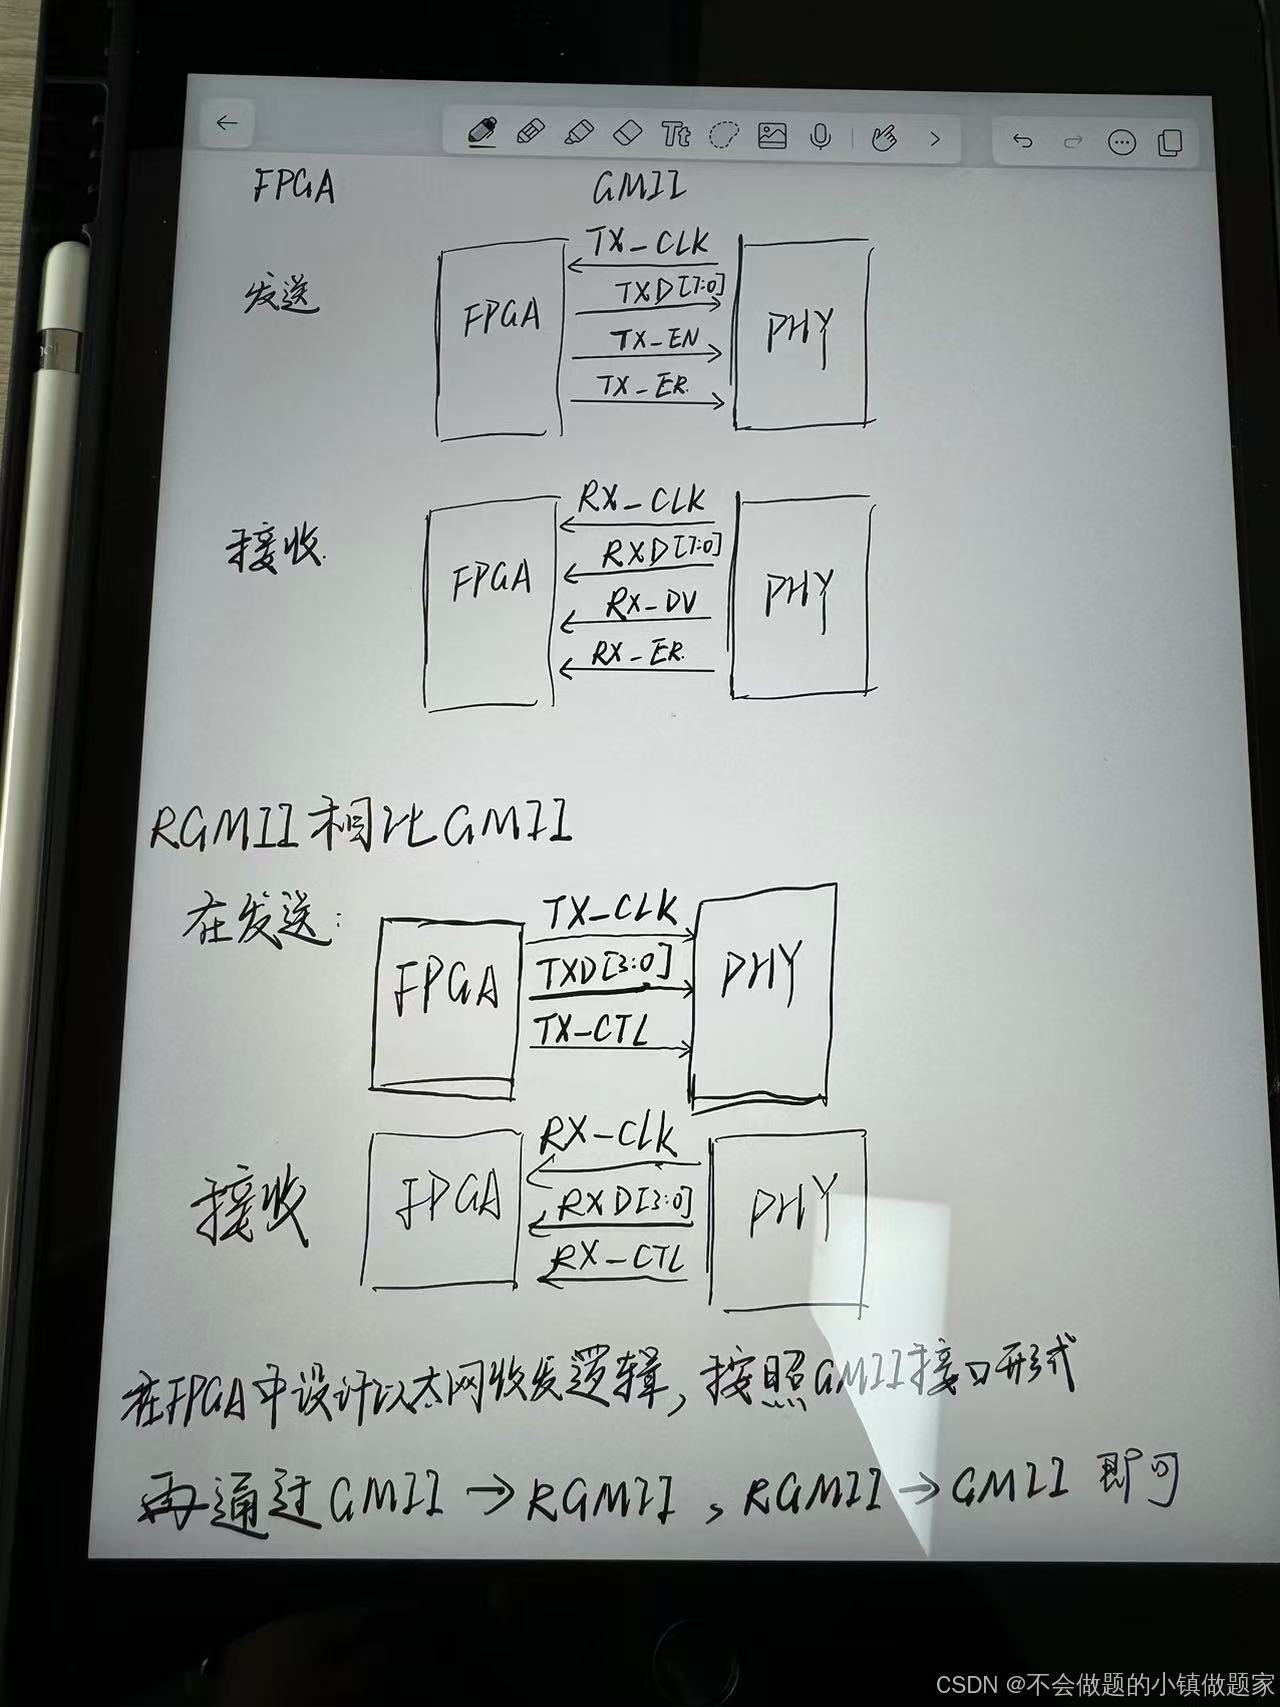 FPGA GMII
发送
FPGA
TX_CLK
TXD[7:0]
TX_EN
TX_ER.
PHY
接收.
FPGA
RX_CLK
RXD[7:0]
RX_DV
RX_ER.
PHY
RGMII相比GMII
在发送:
FPGA
TX_CLK
TXD[3:0]
TX_CTL
PHY
接收
FPGA
RX_CLK
RXD[3:0]
RX_CTL
PHY
在FPGA中设计以太网收发逻辑,按照GMII接口形式
再通过GMII→RGMII,RGMII→GMII即可
CSDN @不会做题的小镇做题家